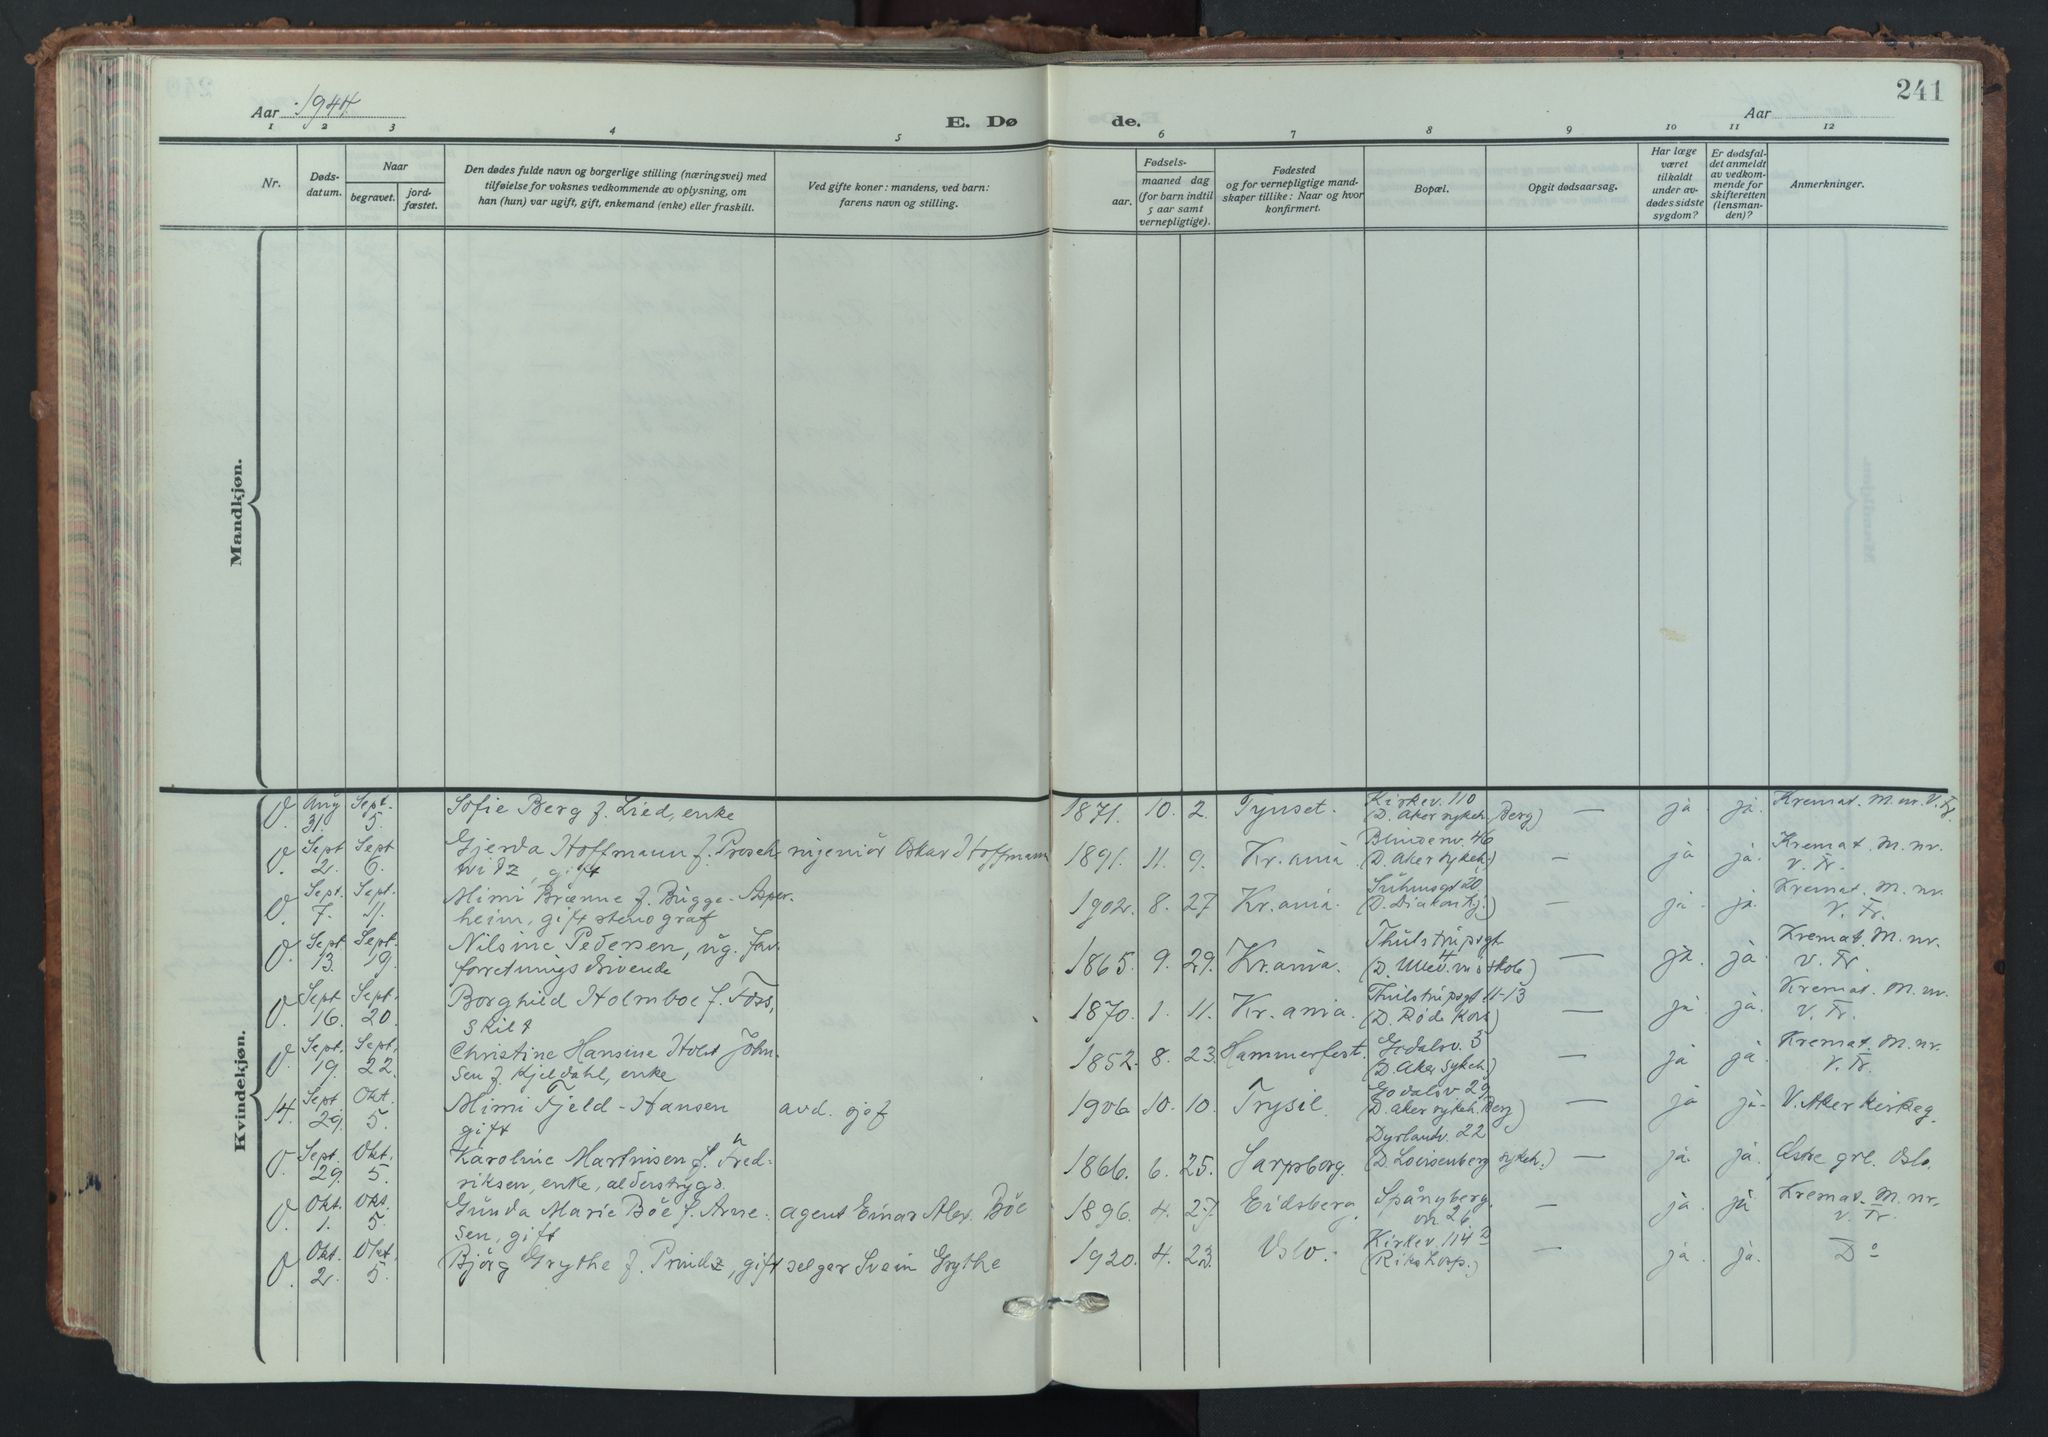 Aar 1944
E. Døde.
Aar
241
1 2 3 4 5 6 7 8 9 10 11 12
Nr.
Dødsdatum.
Naar
begravet.
jordfæstet.
Den dødes fulde navn og borgerlige stilling (næringsvei) med
tilføielse for voksnes vedkommende av oplysning, om
han (hun) var ugift, gift, enkemand (enke) eller fraskilt.
Ved gifte koner: mandens, ved barn:
farens navn og stilling.
Fødsels-
aar.
maaned dag
(for barn indtil
5 aar samt
vernepligtige).
Fødested
og for vernepligtige mand-
skaper tillike: Naar og hvor
konfirmert.
Bopæl.
Opgit dødsaarsag.
Har læge
været
tilkaldt
under av-
dødes sidste
sygdom?
Er dødsfal-
det anmeldt
av vedkom-
mende for
skifteretten
(lensman-
den)?
Anmerkninger.
Mandkjøn.
Kvindekjøn.
Aug. Sept. Sofie Berg f. Lied, enke 1871. 10. 2. Tynset. Kirkev. 110 — ja. ja. Kremat. M. nr. V. Fr.
31. 5. (D. Aker sykeh. Berg)
Sept. Sept Gjerda Hoffmann f. Prosch- ingeniör Oskar Hoffmann 1891. 11. 9. Kr.ania Blindernv. 46 — ja ja. Kremat. M. nr.
2. 6. witz, gift (D. Aker sykeh.) V. Fr.
Sept. Sept. Mimi Brænne f. Bugge-Asper- 1902. 8. 27 Kr.ania. Suhmsgt 20 — ja. ja. Kremat. M. nr.
7. 11. heim, gift stenograf (D. Diakonhj.) V. Fr.
Sept Sept. Nilsine Pedersen, ug. 1865. 9. 29. Kr.ania. Thulstrupsgt. 4 — ja. ja. Kremat. M. nr.
13. 19. forretningsdrivende V. Fr.
Sept Sept. Borghild Holmboe f. Foss, 1870. 1. 11. Kr.ania. Thulstrupsgt 11-13 — ja. ja. Kremat. M. nr.
16. 20. skilt (D. Røde Kors) V. Fr.
Sept. Sept. Christine Hansine Holst John- 1852. 8. 23. Hammerfest. Godalsv. 5 — ja ja. Kremat. M. nr.
19. 22. sen f. Kjeldahl, enke (D. Aker sykeh.) V. Fr.
14. Sept Okt. Mimi Fjeld-Hansen avd. sjef 1906 10. 10. Trysil. Godalsv 29 — ja ja. V. Aker kirkeg.
29. 5. gift (D. Aker sykeh. Berg)
Sept. Okt. Karoline Martinsen f. Fred- 1866. 6. 25. Sarpsborg. Dyrlandv. 22 — ja. ja. Østre grl. Oslo.
29. 5. riksen, enke, alderstrygd. (D. Lovisenberg sykeh.)
Okt. Okt. Gunda Marie Böe f. Arne- agent Einar Alex. Böe 1896. 4. 27. Eidsberg. Spångberg- — ja. ja Kremat. M. nr.
1. 5. sen, gift vn. 26. V. Fr.
Okt. Okt. Björg Grythe f. Prindz, gift selger Svein Grythe 1920. 4. 23. Oslo. Kirkev. 114 D — ja. ja. Do
2. 5. (Rikshosp.)